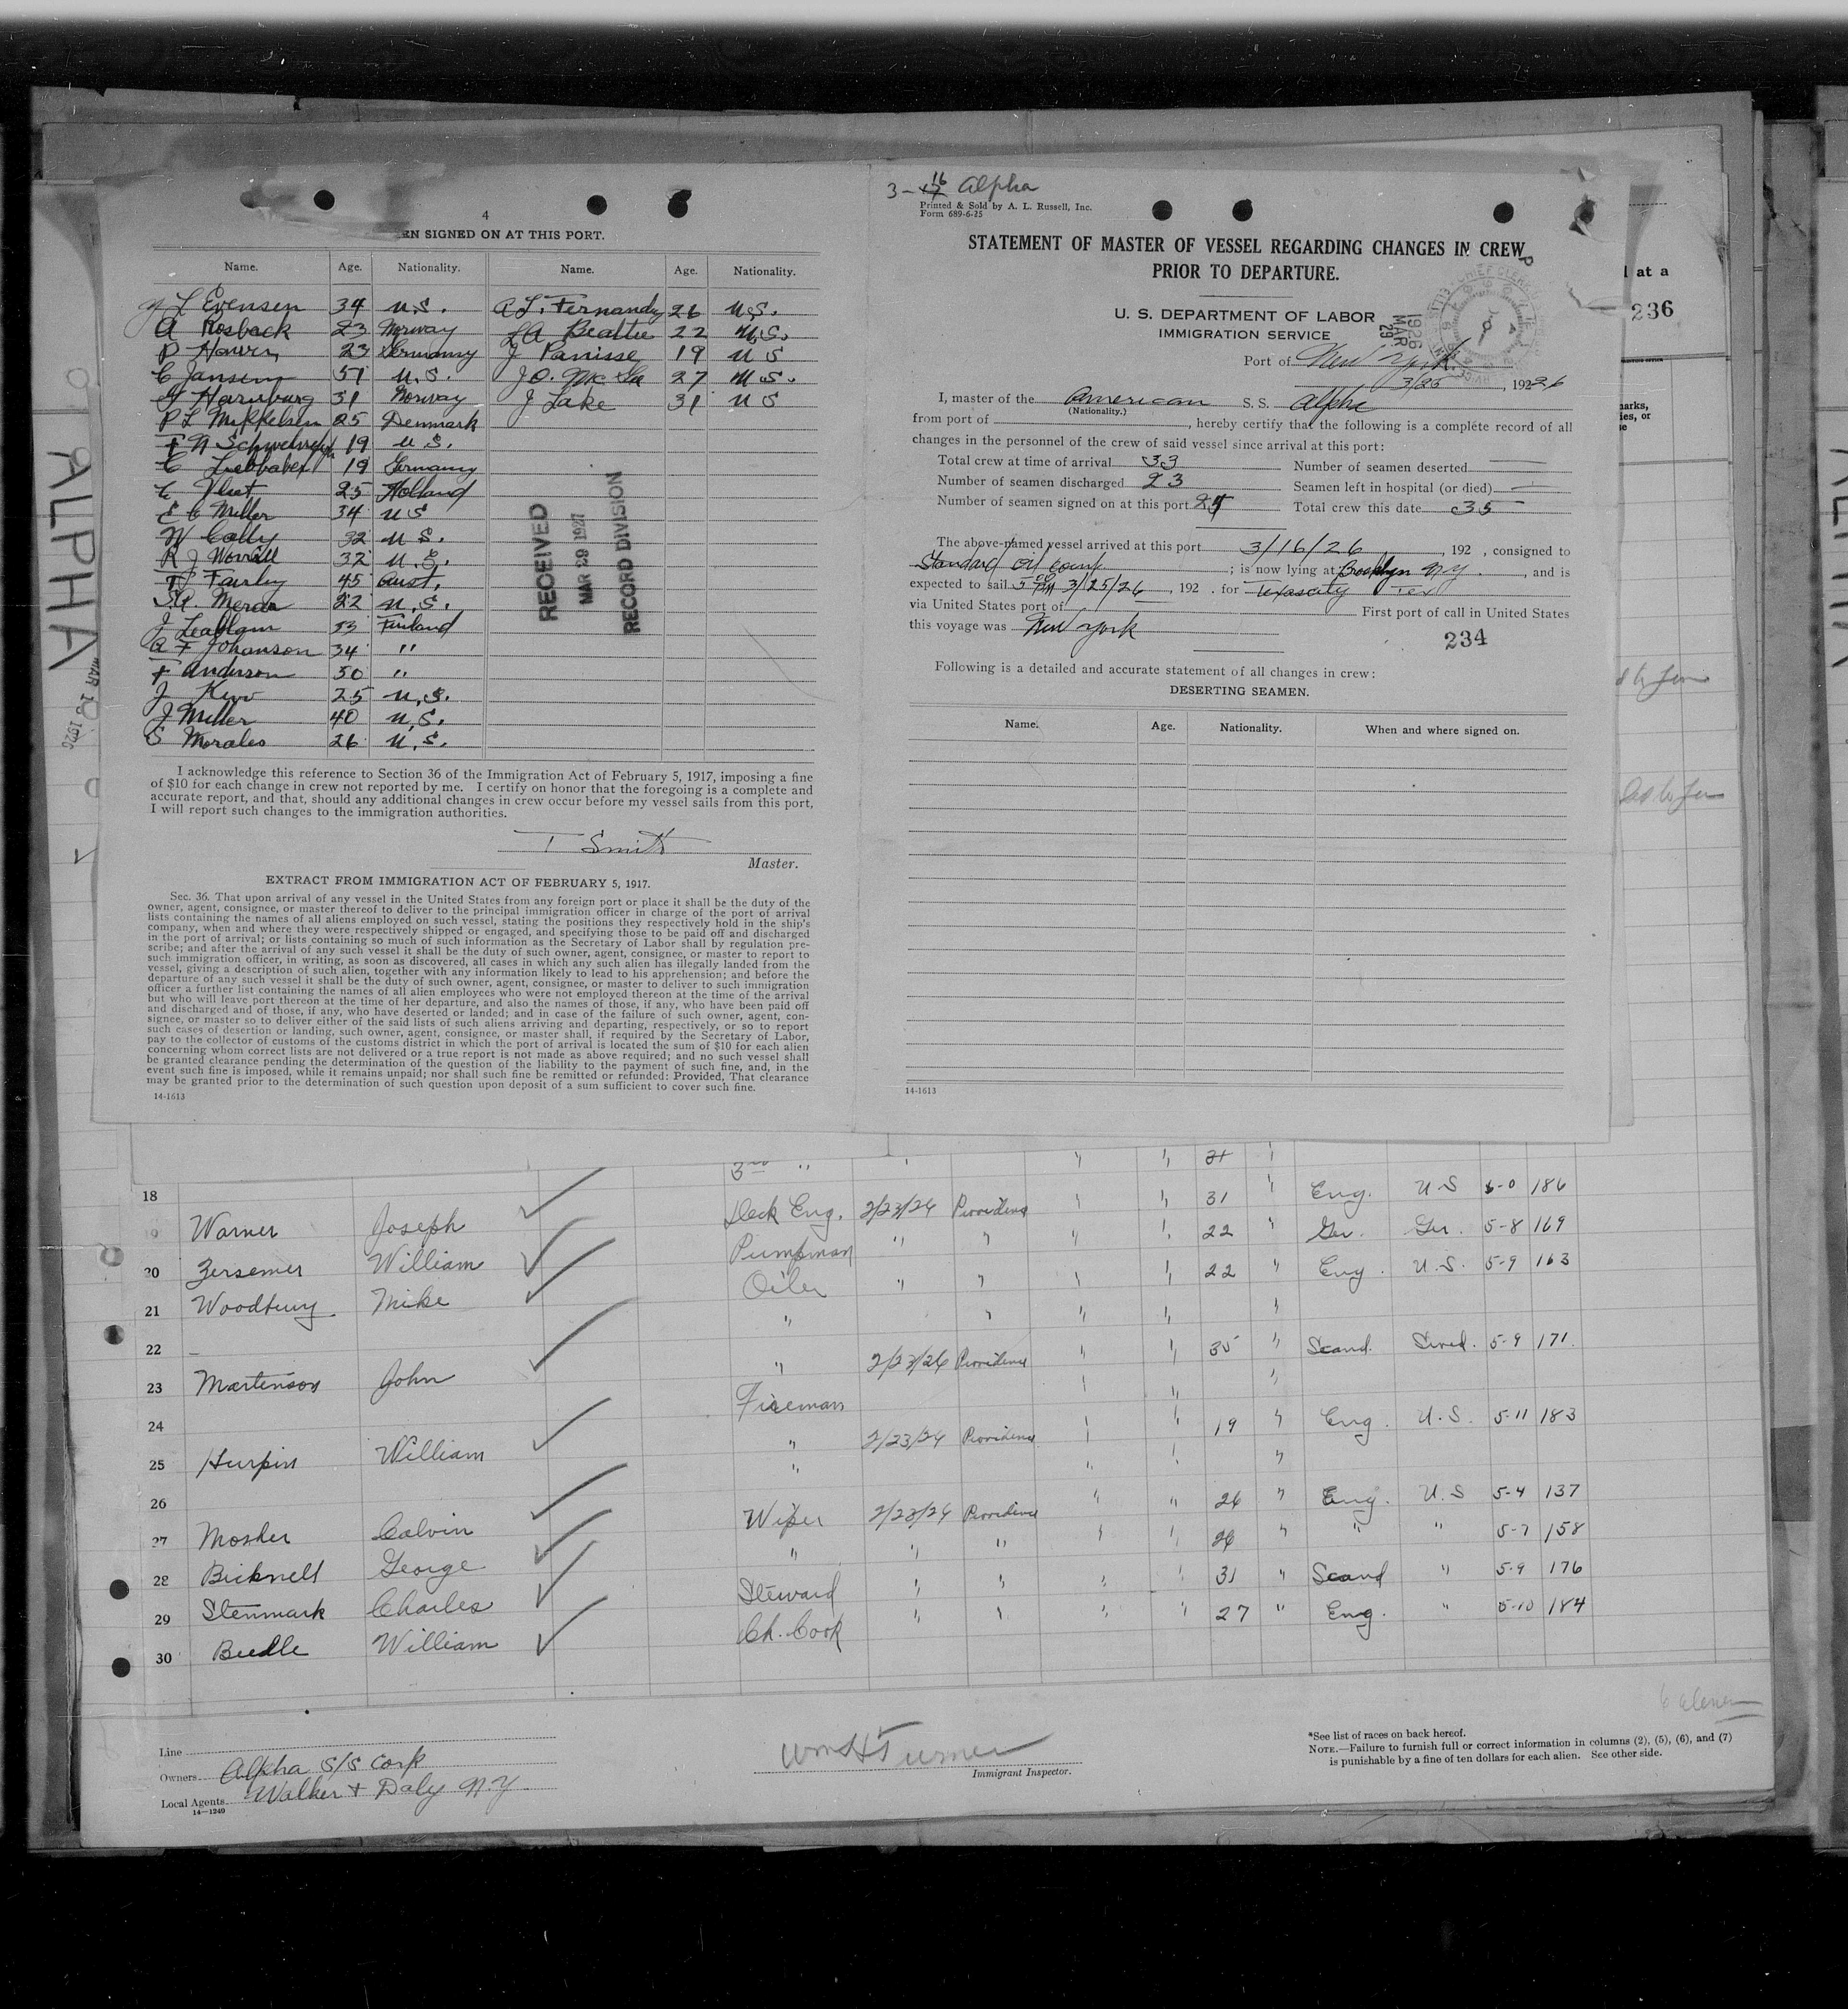 4
EN SIGNED ON AT THIS PORT.
Name. Age. Nationality. Name. Age. Nationality.
L Evensen 34 U.S. A L. Fernandy 26 U.S.
A Rosback 23 Norway L A Beattie 22 U.S.
P 23 Germany J Panisse 19 U S
C Jansen 51 U.S. J O. Mc 27 U S.
Harnbarg 31 Norway J Lake 31 U S
P L Mikkelsen 25 Denmark
F N 19 U S.
C 19 Germany
Vliet 25 Holland
E C Miller 34 U S
W Cally 32 U S.
R J Worrill 32 U.S.
Fairley 45 Aust.
22 U.S.
J 33 Finland
A F Johanson 34 "
F Anderson 30 "
J 25 U.S.
J Miller 40 U.S.
S Morales 26 U.S.
RECEIVED
MAR 29 1927
RECORD DIVISION
I acknowledge this reference to Section 36 of the Immigration Act of February 5, 1917, imposing a fine
of $10 for each change in crew not reported by me. I certify on honor that the foregoing is a complete and
accurate report, and that, should any additional changes in crew occur before my vessel sails from this port,
I will report such changes to the immigration authorities.
T Smith
Master.
EXTRACT FROM IMMIGRATION ACT OF FEBRUARY 5, 1917.
Sec. 36. That upon arrival of any vessel in the United States from any foreign port or place it shall be the duty of the
owner, agent, consignee, or master thereof to deliver to the principal immigration officer in charge of the port of arrival
lists containing the names of all aliens employed on such vessel, stating the positions they respectively hold in the ship's
company, when and where they were respectively shipped or engaged, and specifying those to be paid off and discharged
in the port of arrival; or lists containing so much of such information as the Secretary of Labor shall by regulation pre-
scribe; and after the arrival of any such vessel it shall be the duty of such owner, agent, consignee, or master to report to
such immigration officer, in writing, as soon as discovered, all cases in which any such alien has illegally landed from the
vessel, giving a description of such alien, together with any information likely to lead to his apprehension; and before the
departure of any such vessel it shall be the duty of such owner, agent, consignee, or master to deliver to such immigration
officer a further list containing the names of all alien employees who were not employed thereon at the time of the arrival
but who will leave port thereon at the time of her departure, and also the names of those, if any, who have been paid off
and discharged and of those, if any, who have deserted or landed; and in case of the failure of such owner, agent, con-
signee, or master so to deliver either of the said lists of such aliens arriving and departing, respectively, or so to report
such cases of desertion or landing, such owner, agent, consignee, or master shall, if required by the Secretary of Labor,
pay to the collector of customs of the customs district in which the port of arrival is located the sum of $10 for each alien
concerning whom correct lists are not delivered or a true report is not made as above required; and no such vessel shall
be granted clearance pending the determination of the question of the liability to the payment of such fine, and, in the
event such fine is imposed, while it remains unpaid; nor shall such fine be remitted or refunded: Provided, That clearance
may be granted prior to the determination of such question upon deposit of a sum sufficient to cover such fine.
14-1613
3-16 Alpha
Printed & Sold by A. L. Russell, Inc.
Form 689-6-25
STATEMENT OF MASTER OF VESSEL REGARDING CHANGES IN CREW
PRIOR TO DEPARTURE.
U. S. DEPARTMENT OF LABOR
IMMIGRATION SERVICE
1926
MAR
29
Port of New York.
3/26, 1926
I, master of the American S. S. Alpha
(Nationality.)
from port of , hereby certify that the following is a complete record of all
changes in the personnel of the crew of said vessel since arrival at this port:
Total crew at time of arrival 33 Number of seamen deserted
Number of seamen discharged 23 Seamen left in hospital (or died)
Number of seamen signed on at this port 25 Total crew this date 35
The above-named vessel arrived at this port 3/16/26, 192 , consigned to
Standard Oil Comp ; is now lying at Brooklyn N.Y. , and is
expected to sail 5 PM 3/25/26, 192 . for Texas city Tex
via United States port of First port of call in United States
this voyage was New York
234
Following is a detailed and accurate statement of all changes in crew:
DESERTING SEAMEN.
Name. Age. Nationality. When and where signed on.
14-1613
at a
236
ALPHA
MAR 1926
3rd " 31
18
19 Warner Joseph Deck Eng. 2/23/26 Providence " " 31 " Eng. U S 6-0 186
20 Zersemer William Pumpman " " " " 22 " Ger. Ger. 5-8 169
21 Woodbury Mike Oiler " " " " 22 " Eng. U.S. 5-9 163
22 " " " " "
23 Martenson John " 2/23/26 Providence " " 35 " Scand. Swed. 5-9 171.
24 Fireman " " "
25 Hurpin William " 2/23/26 Providence " " 19 " Eng. U.S. 5-11 183
26 " " " "
27 Mosher Calvin Wiper 2/23/26 Providence " " 26 " Eng. U.S 5-4 137
28 Bicknell George " " " " " 26 " " " 5-7 158
29 Stenmark Charles Steward " " " " 31 " Scand " 5-9 176
30 Beedle William Ch. Cook " " " " 27 " Eng. " 5-10 184
Line
Owners Alpha S/S Corp
Local Agents Walker + Daly N.Y.
14—1240
Wm H Turner
Immigrant Inspector.
*See list of races on back hereof.
NOTE.—Failure to furnish full or correct information in columns (2), (5), (6), and (7)
is punishable by a fine of ten dollars for each alien. See other side.